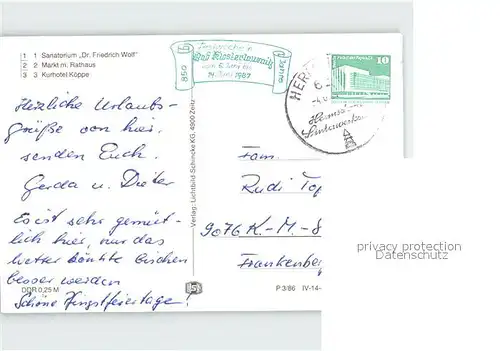 1 1 Sanatorium „Dr. Friedrich Wolf"
2 2 Markt m. Rathaus
3 3 Kurhotel Köppe
Herzliche Urlaubs-
grüße von hier
senden Euch
Gerda u. Dieter
Es ist sehr gemüt-
lich hier, nur das
Wetter könnte bischen
besser werden
Schöne Pfingstfeiertage!
DDR 0,25 M
Verlag: Lichtbild-Schincke KG, 4800 Zeitz
850 Jahre
Festwoche
Bad Klosterlausnitz
vom 6. Juni bis
14. Juni 1987
10
HER
6
Fam.
Rudi Top
9076 K.-M.-S
Frankenberg
P 3/86 IV-14-
privacy protection
Datenschutz